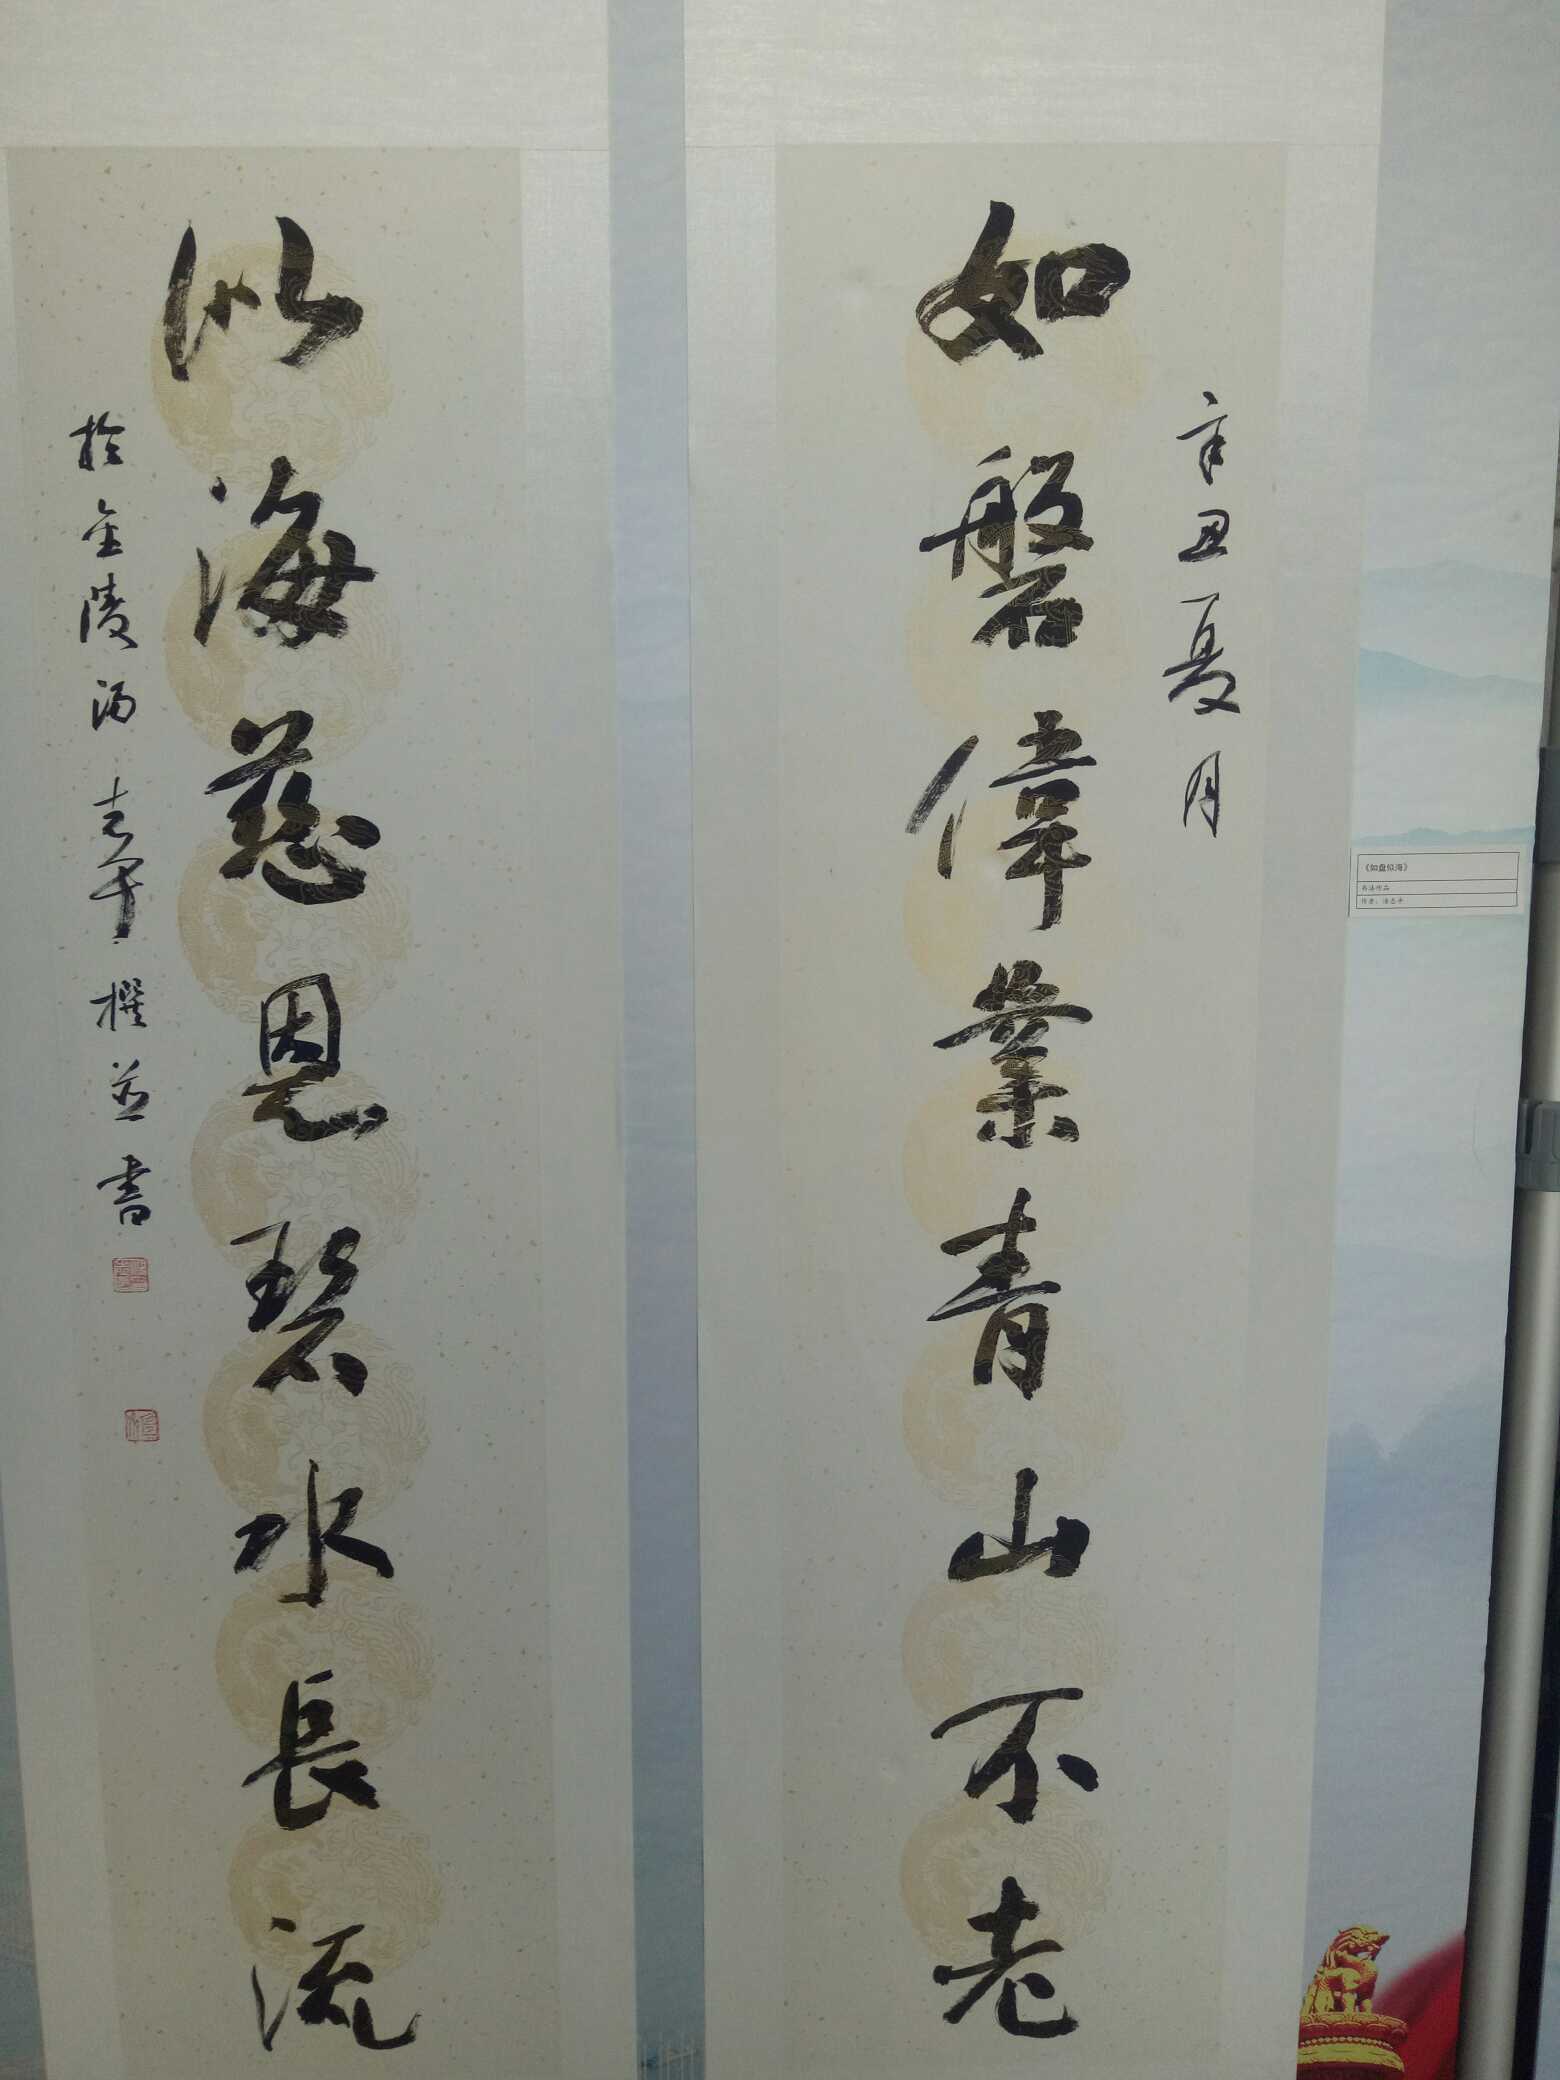 辛丑夏月
如磐偉業青山不老
似海慈恩碧水長流
於金陵湯志平撰並書
《如盘似海》
书法作品
作者：汤志平